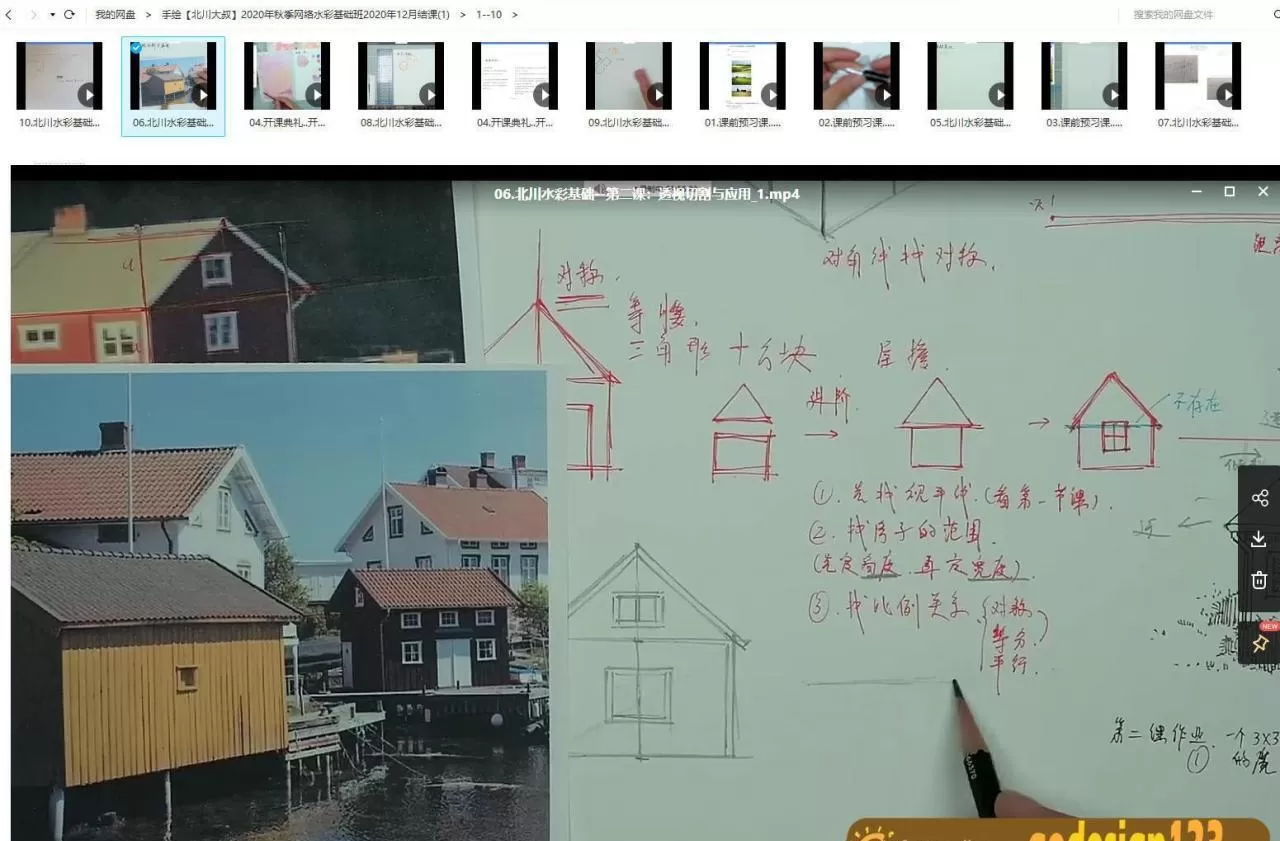 我的网盘 > 手绘【北川大叔】2020年秋季网络水彩基础班2020年12月结课(1) > 1--10 >
搜索我的网盘文件
10.北川水彩基础...
06.北川水彩基础...
04.开课典礼..开...
08.北川水彩基础...
04.开课典礼..开...
09.北川水彩基础...
01.课前预习课.....
02.课前预习课.....
05.北川水彩基础...
03.课前预习课.....
07.北川水彩基础...
06.北川水彩基础--第二课：透视切割与应用_1.mp4
对角线找对称.
对称.
等腰.
三角形 十方块 屋檐.
进阶.
不存在
①. 先找视平线.(看第一节课).
②. 找房子的范围.
(先定高度.再定宽度).
③. 找比例关系.(对称
等分.
平行.
近
NEW
第二课作业. 一个3X3
①
的